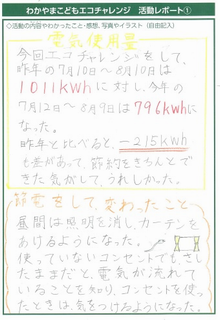 わかやまこどもエコチャレンジ 活動レポート①
◇活動の内容やわかったこと・感想、写真やイラスト（自由記入）
電気使用量
今回エコチャレンジをして、
昨年の7月10日～8月10日は
1011kwhに対し、今年の
7月12日～8月9日は796kwhに
なった。
昨年と比べると、-215kwh
も差があって、節約をきちんとで
きた気がして、うれしかった。
節電をして、変わったこと
昼間は照明を消し、カーテンを
あけるようになった。
使っていないコンセントでも、さし
たままだと、電気が流れて
いることを知り、コンセントを使っ
たときは、気をつけるようになった。